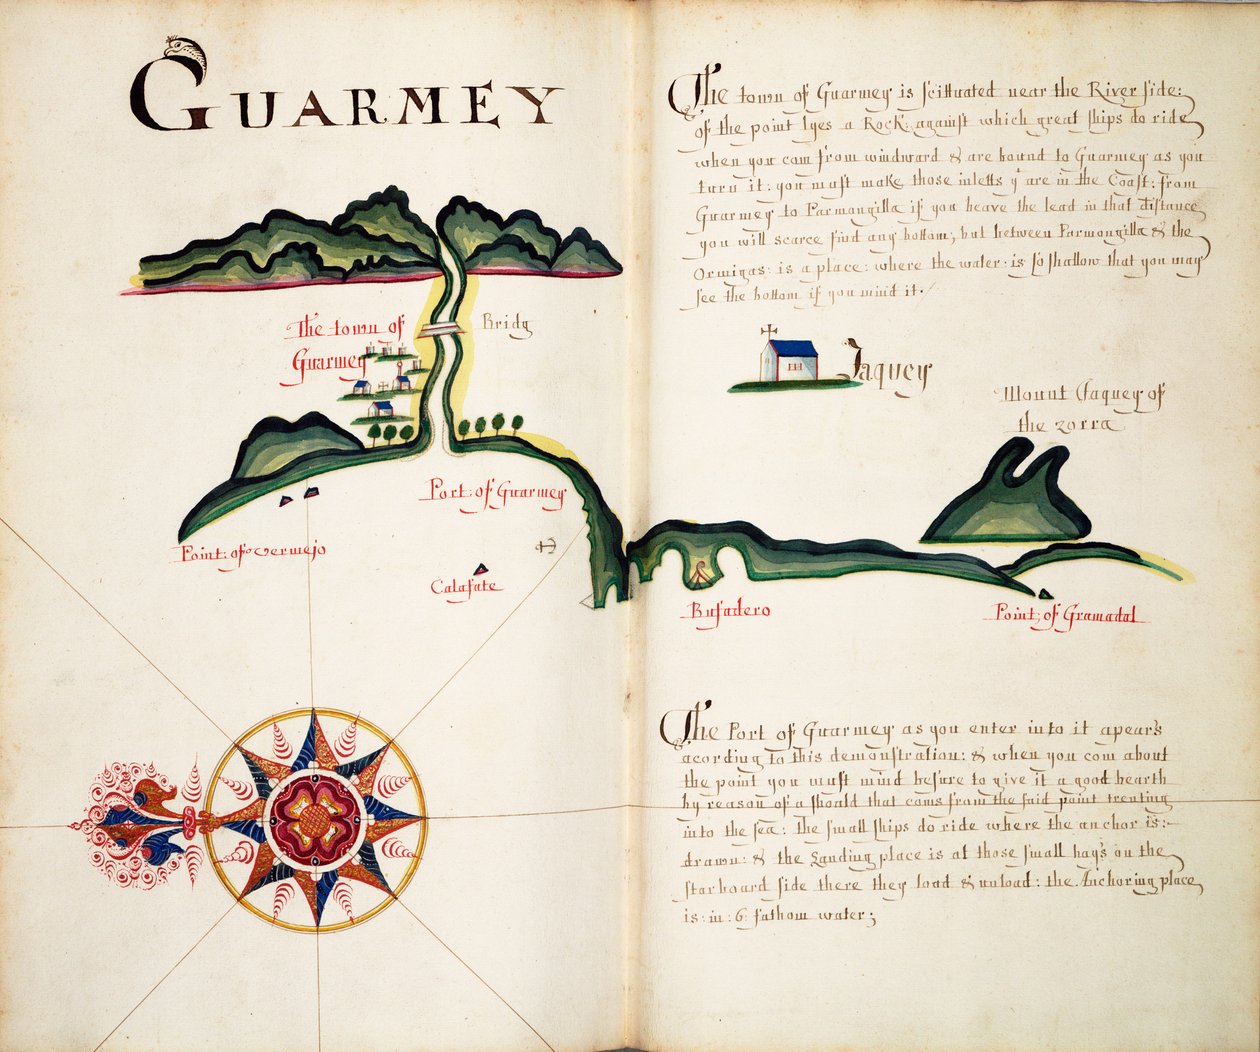 GUARMEY
The town of Guarmey is scittuated near the River side:
of the point lyes a Rock: against which great ships do ride
when you com from windward & are bound to Guarmey as you
turn it: you must make those inletts yt are in the Coast: from
Guarmey to Parmongilla if you heave the lead in that distance
you will scarce find any bottom; but between Parmongilla & the
Ormigas: is a place: where the water: is so shallow that you may
see the bottom if you mind it.
The town of
Guarmey
Bridg
Jaquey
Mount Jaquey of
the zorra
Port of Guarmey
Point of Vermejo
Calafate
Bufadero
Point of Gramadal
The Port of Guarmey as you enter into it apears
acording to this demonstration: & when you com about
the point you must mind besure to give it a good bearth
by reason of a should that coms from the said point trenting
into the sea: The small ships do ride where the anchor is:
drawn: & the Landing place is at those small bays on the
starboard side there they load & unload: the Anchoring place
is: in: 6: fathom water;